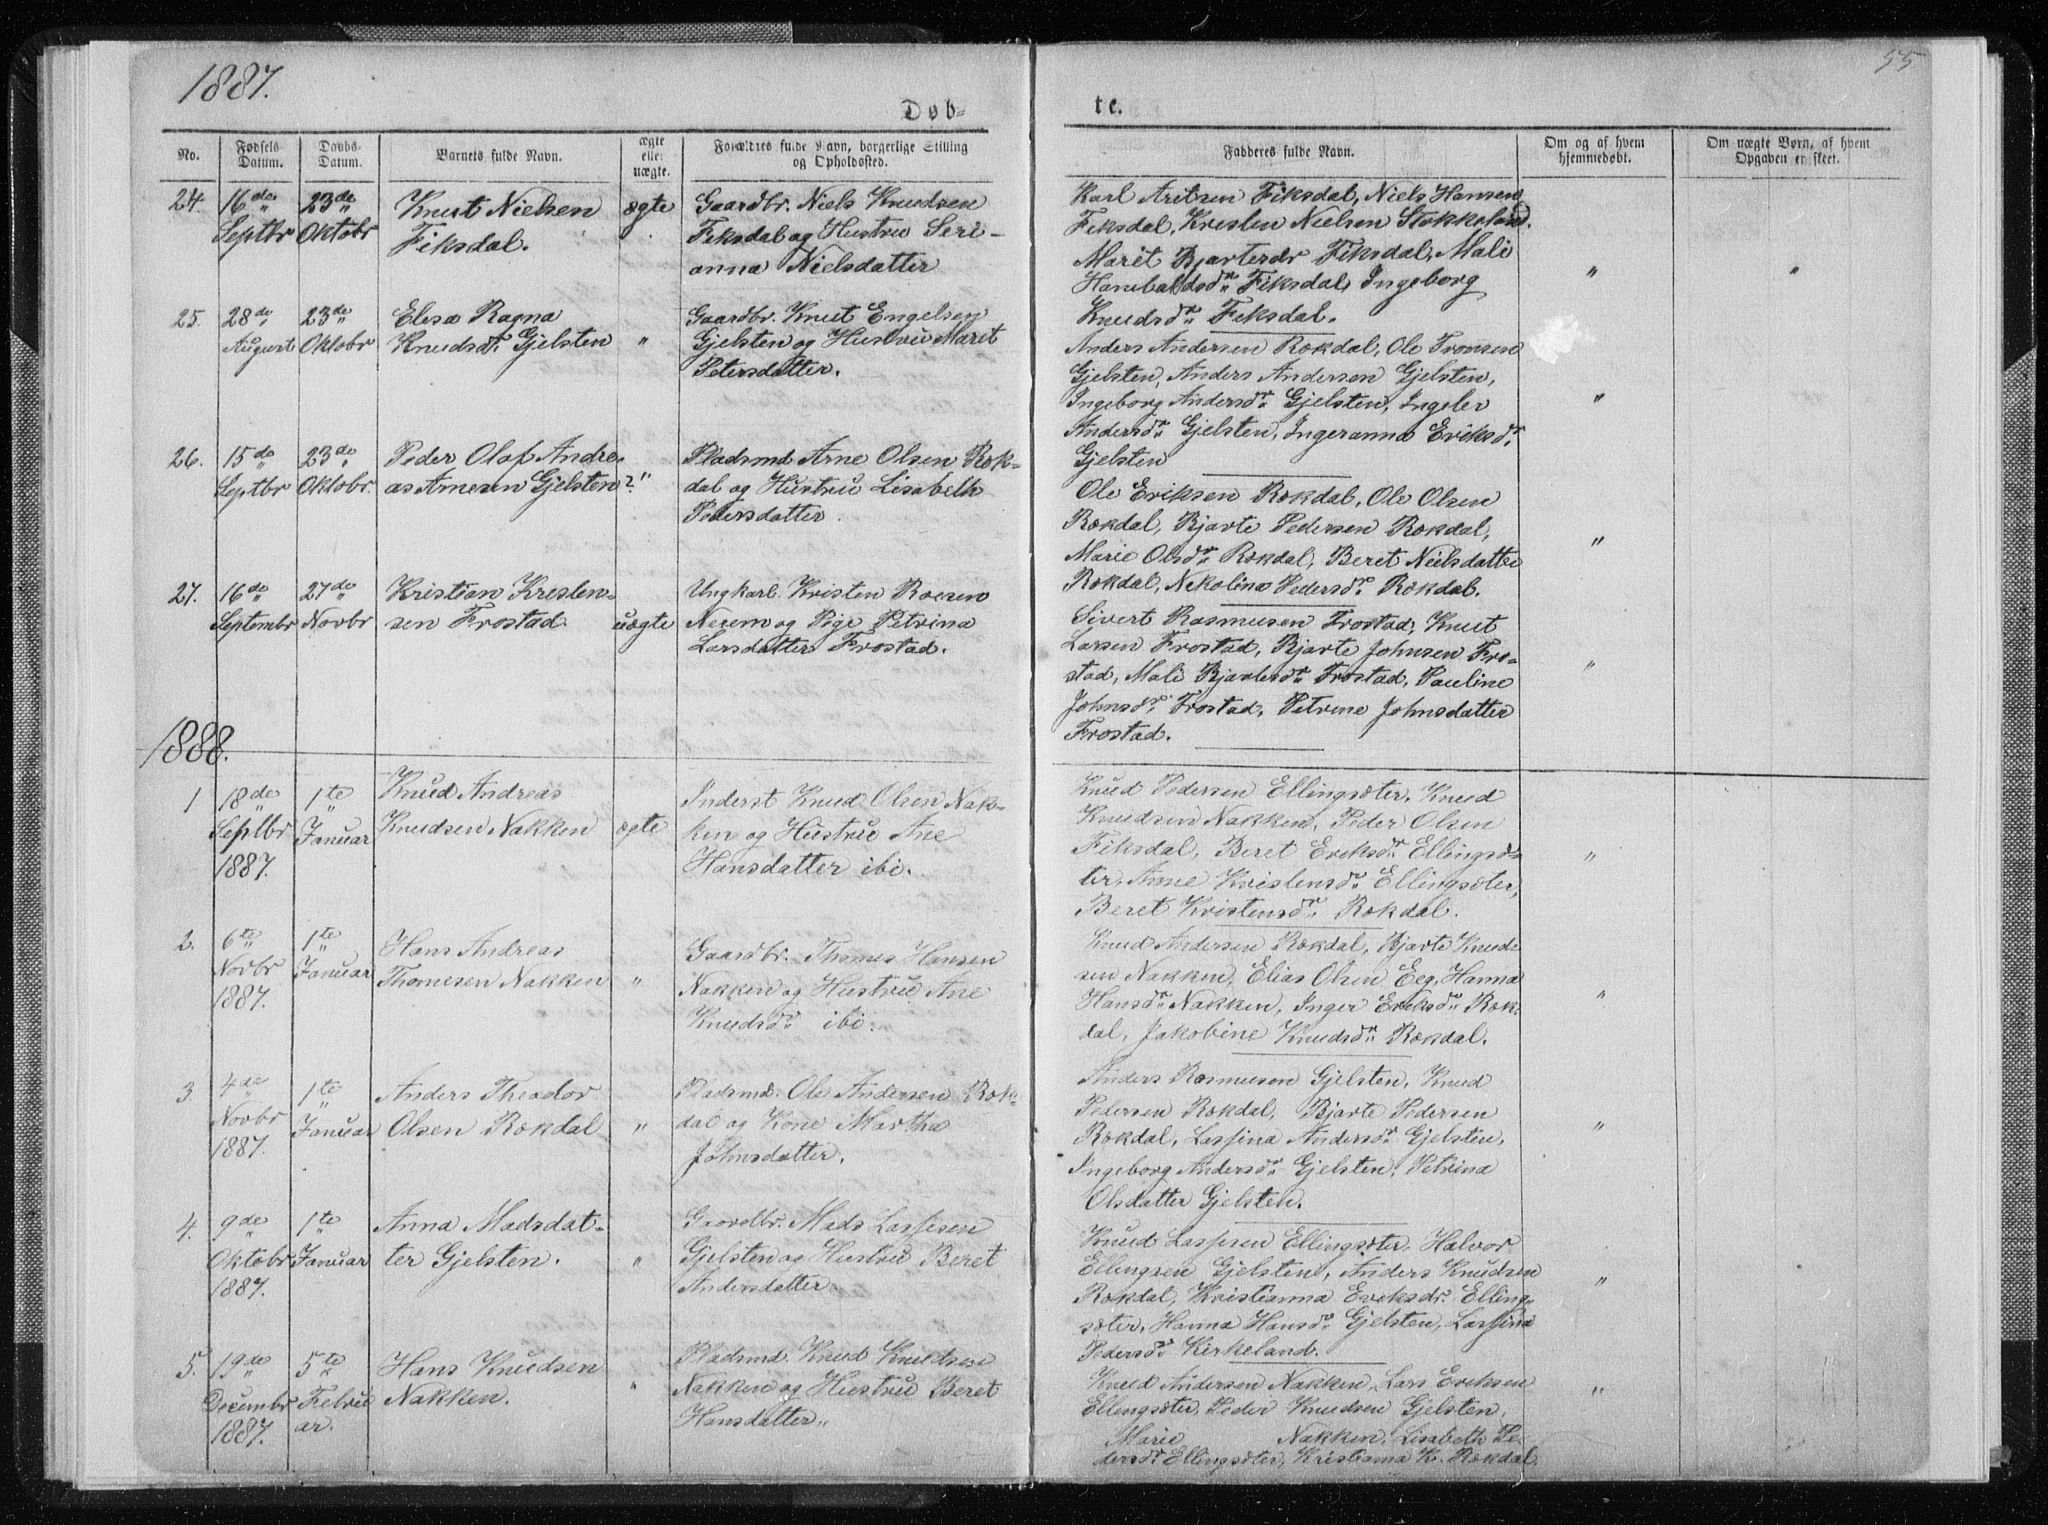 1887.
55
Døb-
te.
No.
Fødsels Datum.
Daabs-Datum.
Barnets fulde Navn.
ægte eller uægte.
Forældres fulde Navn, borgerlige Stilling og Opholdssted.
Fadderes fulde Navn.
Om og af hvem hjemmedøbt.
Om uægte Børn, af hvem Opgaven er skeet.
24. 16de Septbr 23de Oktobr
Knut Nielsen
Fiksdal.
ægte
Gaardbr. Niels Knudsen
Fiksdal og Hustru Seri-
anna Nielsdatter
Karl Aritsen Fiksdal, Niels Hansen
Fiksdal, Kristen Nielsen Stokkeland.
Marit Bjartesdr Fiksdal, Mali
Hanibalsdr. Fiksdal, Ingeborg
Knudsdr. Fiksdal.
" "
25. 28de August 23de Oktobr
Elisa Ragna
Knudsdr. Gjelsten
"
Gaardbr. Knut Engelsen
Gjelsten og Hustru Maret
Petersdatter.
Anders Andersen Rekdal, Ole Tronsen
Gjelsten, Anders Andersen Gjelsten,
Ingeborg Andersdr. Gjelsten, Ingelev
Andersdr. Gjelsten, Ingeranna Eriksdr.
Gjelsten
"
26. 15de Septbr 23de Oktobr.
Peder Olaf Andre-
as Arnesen Gjelsten?
"
Pladsmd Arne Olsen Rek-
dal og Hustru Lisabeth
Pedersdatter.
Ole Eriksen Rekdal, Ole Olsen
Rekdal, Bjarte Pedersen Rekdal,
Marie Olsdr. Rekdal, Beret Nielsdatter
Rekdal, Nikolina Pedersdr. Rekdal.
"
27. 16de Septembr 27de Novbr
Kristian Kristen-
sen Frostad
uægte
Ungkarl. Kristen Roesen
Nerem og Pige Petrina
Larsdatter Frostad.
Sivert Rasmusen Frostad, Knut
Larsen Frostad, Bjarte Johnsen Fro-
stad, Mali Bjartesdr. Frostad, Pauline
Johnsdr. Frostad, Petrine Johnsdatter
Frostad.
"
1888.
1 18de Septbr 1887. 1te Januar
Knud Andreas
Knudsen Nakken
ægte
Inderst Knud Olsen Nak-
ken og Hustru Ane
Hansdatter ibi.
Knud Pedersen Ellingsæter, Knud
Knudsen Nakken, Peder Olsen
Fiksdal, Beret Eriksdr. Ellingsæ-
ter, Anne Kristensdr. Ellingsæter,
Beret Kristensdr. Rekdal.
"
2. 6te Novbr 1887. 1te Januar
Hans Andreas
Thomesen Nakken
"
Gaardbr. Thomes Hansen
Nakken og Hustru Ane
Knudsdr. ibi.
Knud Andersen Rekdal, Bjarte Knud-
sen Nakken, Elias Olsen Eeg, Hanna
Hansdr. Nakken, Inger Eriksdr. Rek-
dal, Jakobine Knudsdr. Rekdal.
"
3. 4de Novbr 1887. 1te Januar
Anders Theodor
Olsen Rekdal
"
Pladsmd. Ole Andersen Rek-
dal og Kone Martha
Johnsdatter.
Anders Rasmusen Gjelsten, Knud
Pedersen Rekdal, Bjarte Pedersen
Rekdal, Lassina Andersdr. Gjelsten,
Ingeborg Andersdr. Gjelsten, Petrina
Olsdatter Gjelsten.
"
4. 9de Oktobr 1887. 1te Januar
Anna Madsdat-
ter Gjelsten.
"
Gaardbr. Mads Lassesen
Gjelsten og Hustru Beret
Andersdatter
Knud Lassesen Ellingsæter, Halvor
Ellingsen Gjelsten, Anders Knudsen
Rekdal, Kristianna Eriksdr. Elling-
sæter, Hanna Hansdr. Gjelsten, Lassina
Pedersdr. Kirkeland.
"
5. 19de Decembr 1887. 5te Februar.
Hans Knudsen
Nakken.
"
Pladsmd. Knud Knudsen
Nakken og Hustru Beret
Hansdatter.
Knud Andersen Nakken, Lars Eriksen
Ellingsæter, Peder Knudsen Gjelsten,
Marie Nakken, Lisabeth Pe-
dersdr. Ellingsæter, Kristianna K. Rekdal.
"